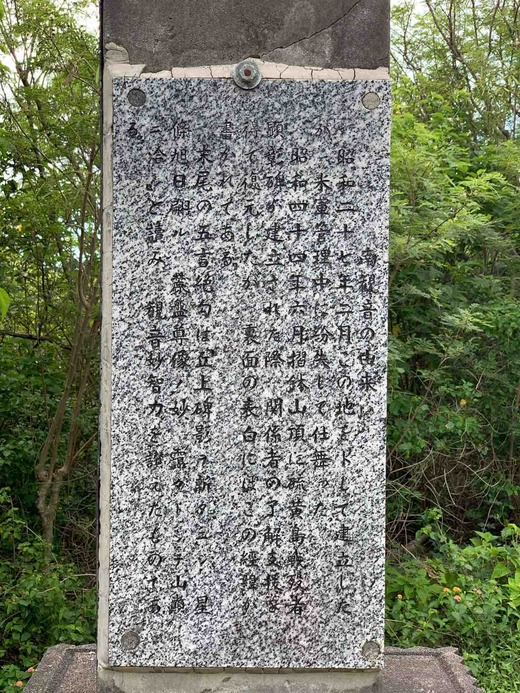 南観音の由来
昭和二十七年二月この地を卜して建立した
が、米軍管理中に紛失して仕舞った
昭和四十四年六月摺鉢山頂に硫黄島戦歿者
顕彰碑が建立された際、関係者の了解支援を
得て復元したが、裏面の表白にはこの経緯が
書かれてある
末尾の五言絶句は 丘上碑影 新 星
條旭日 ル 尊像ノ妙 山
ニ洽シと読み、観音妙智力を讃えたものであ
る